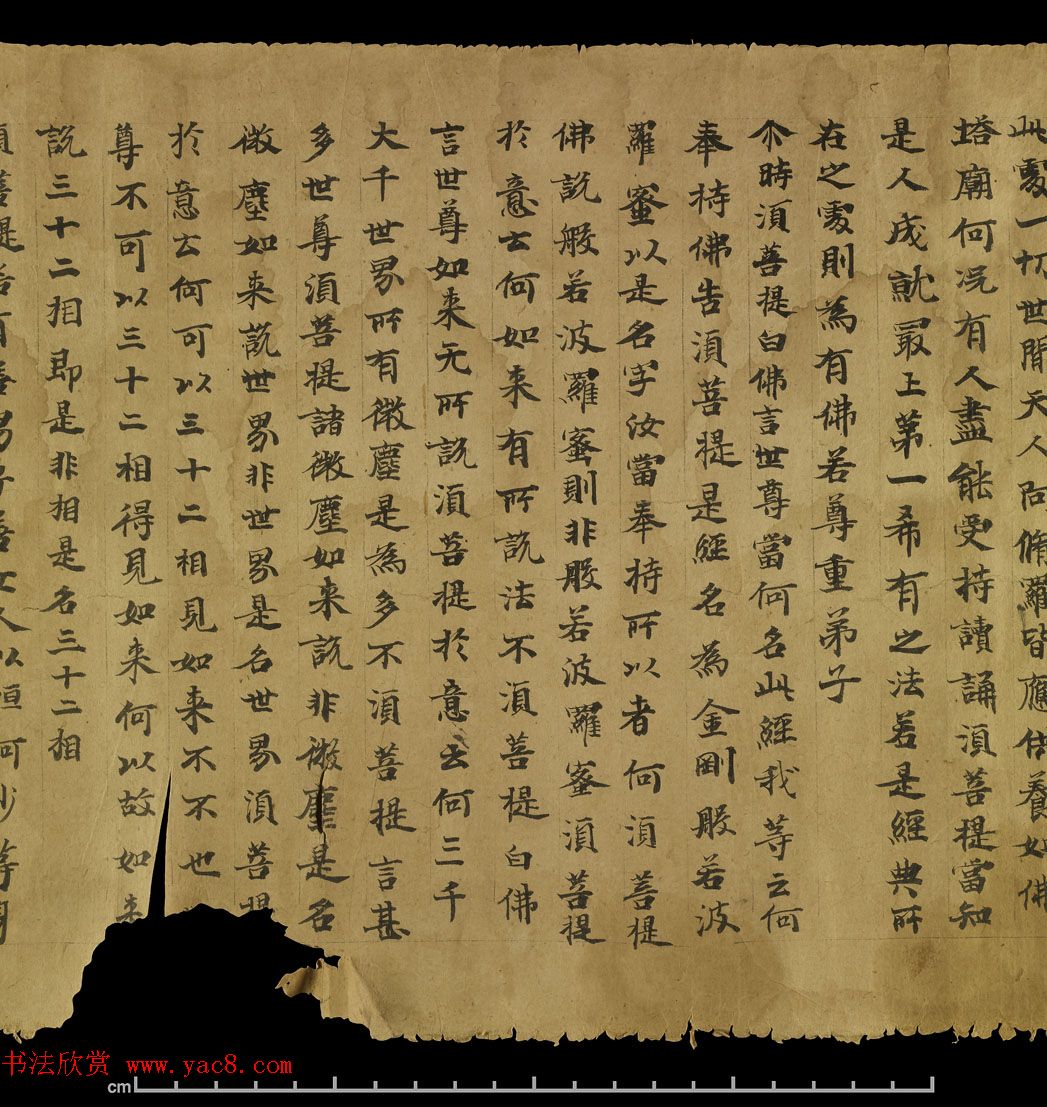 此處一切世間天人阿脩羅皆應供養如佛
塔廟何況有人盡能受持讀誦湏菩提當知
是人成就最上第一希有之法若是經典所
在之處則為有佛若尊重弟子
尒時湏菩提白佛言世尊當何名此經我等云何
奉持佛告湏菩提是經名為金剛般若波
羅蜜以是名字汝當奉持所以者何湏菩提
佛說般若波羅蜜則非般若波羅蜜湏菩提
於意云何如来有所說法不湏菩提白佛
言世尊如来无所說湏菩提於意云何三千
大千世界所有微塵是為多不湏菩提言甚
多世尊湏菩提諸微塵如来說非微塵是名
微塵如来說世界非世界是名世界湏菩提
於意云何可以三十二相見如来不不也
尊不可以三十二相得見如来何以故如来
說三十二相即是非相是名三十二相
湏菩提若有善男子善女人以恒河沙等身
书法欣赏 www.yac8.com
cm